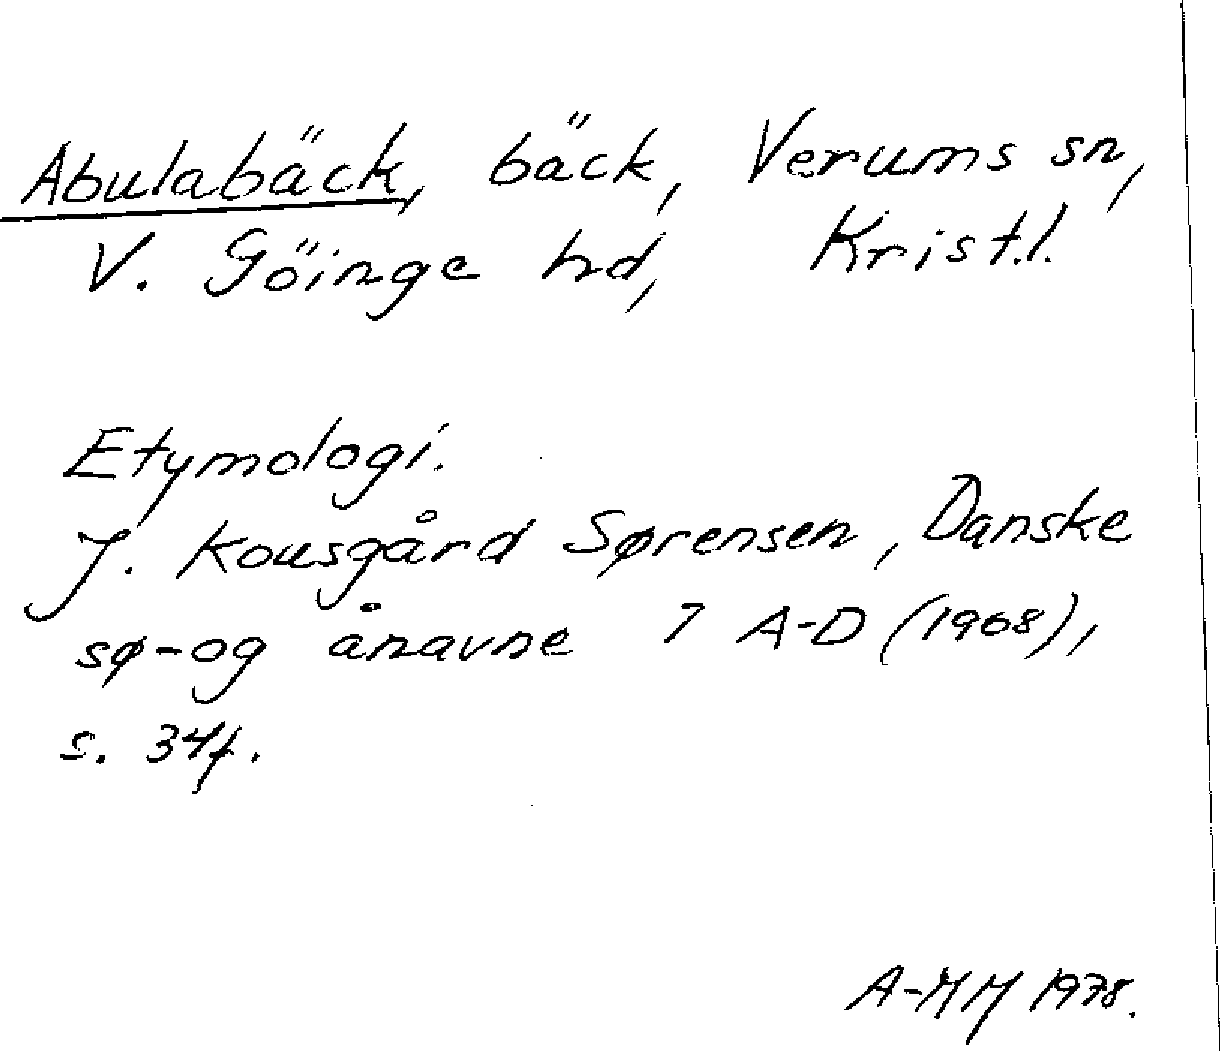 Abulabäck, bäck, Verums sn,
V. Göinge hd, Krist.l.
Etymologi.
J. Kousgård Sørensen, Danske
sø-og ånavne 7 A-D (1968),
s. 34f.
A-MM 1978.